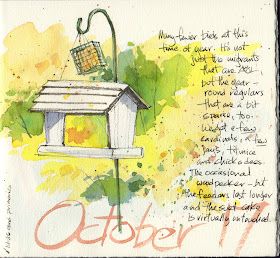 Many fewer birds at this
time of year. It's not
just the migrants
that are
but the year-
round regulars
that are a bit
sparse, too.
We get a few
cardinals, a few
jays, titmice
and chickadees.
The occasional
woodpecker - but
the feeders last longer
and the suet cake
is virtually untouched.
October